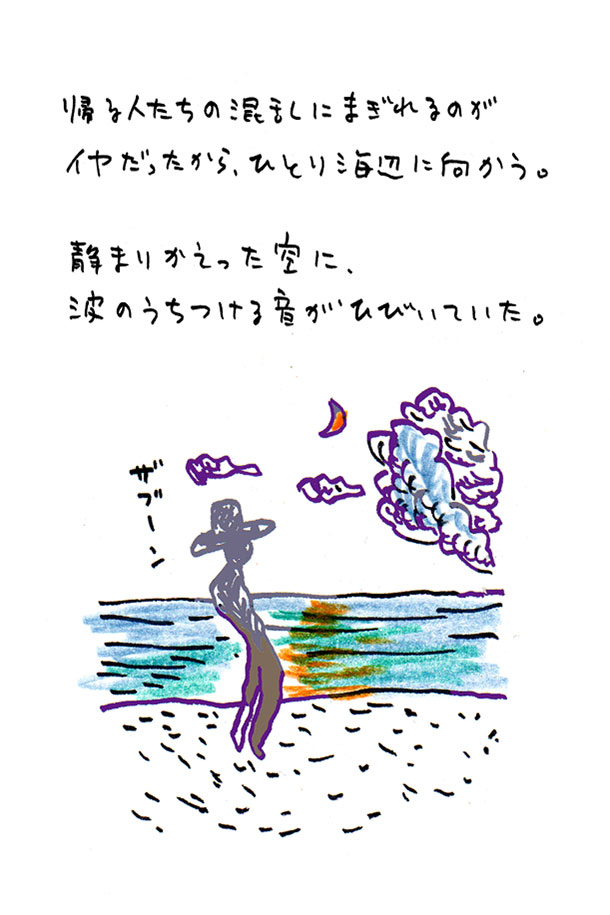 帰る人たちの混乱にまぎれるのが
イヤだったから、ひとり海辺に向かう。
静まりかえった空に、
波のうちつける音がひびいていた。
ザブーン